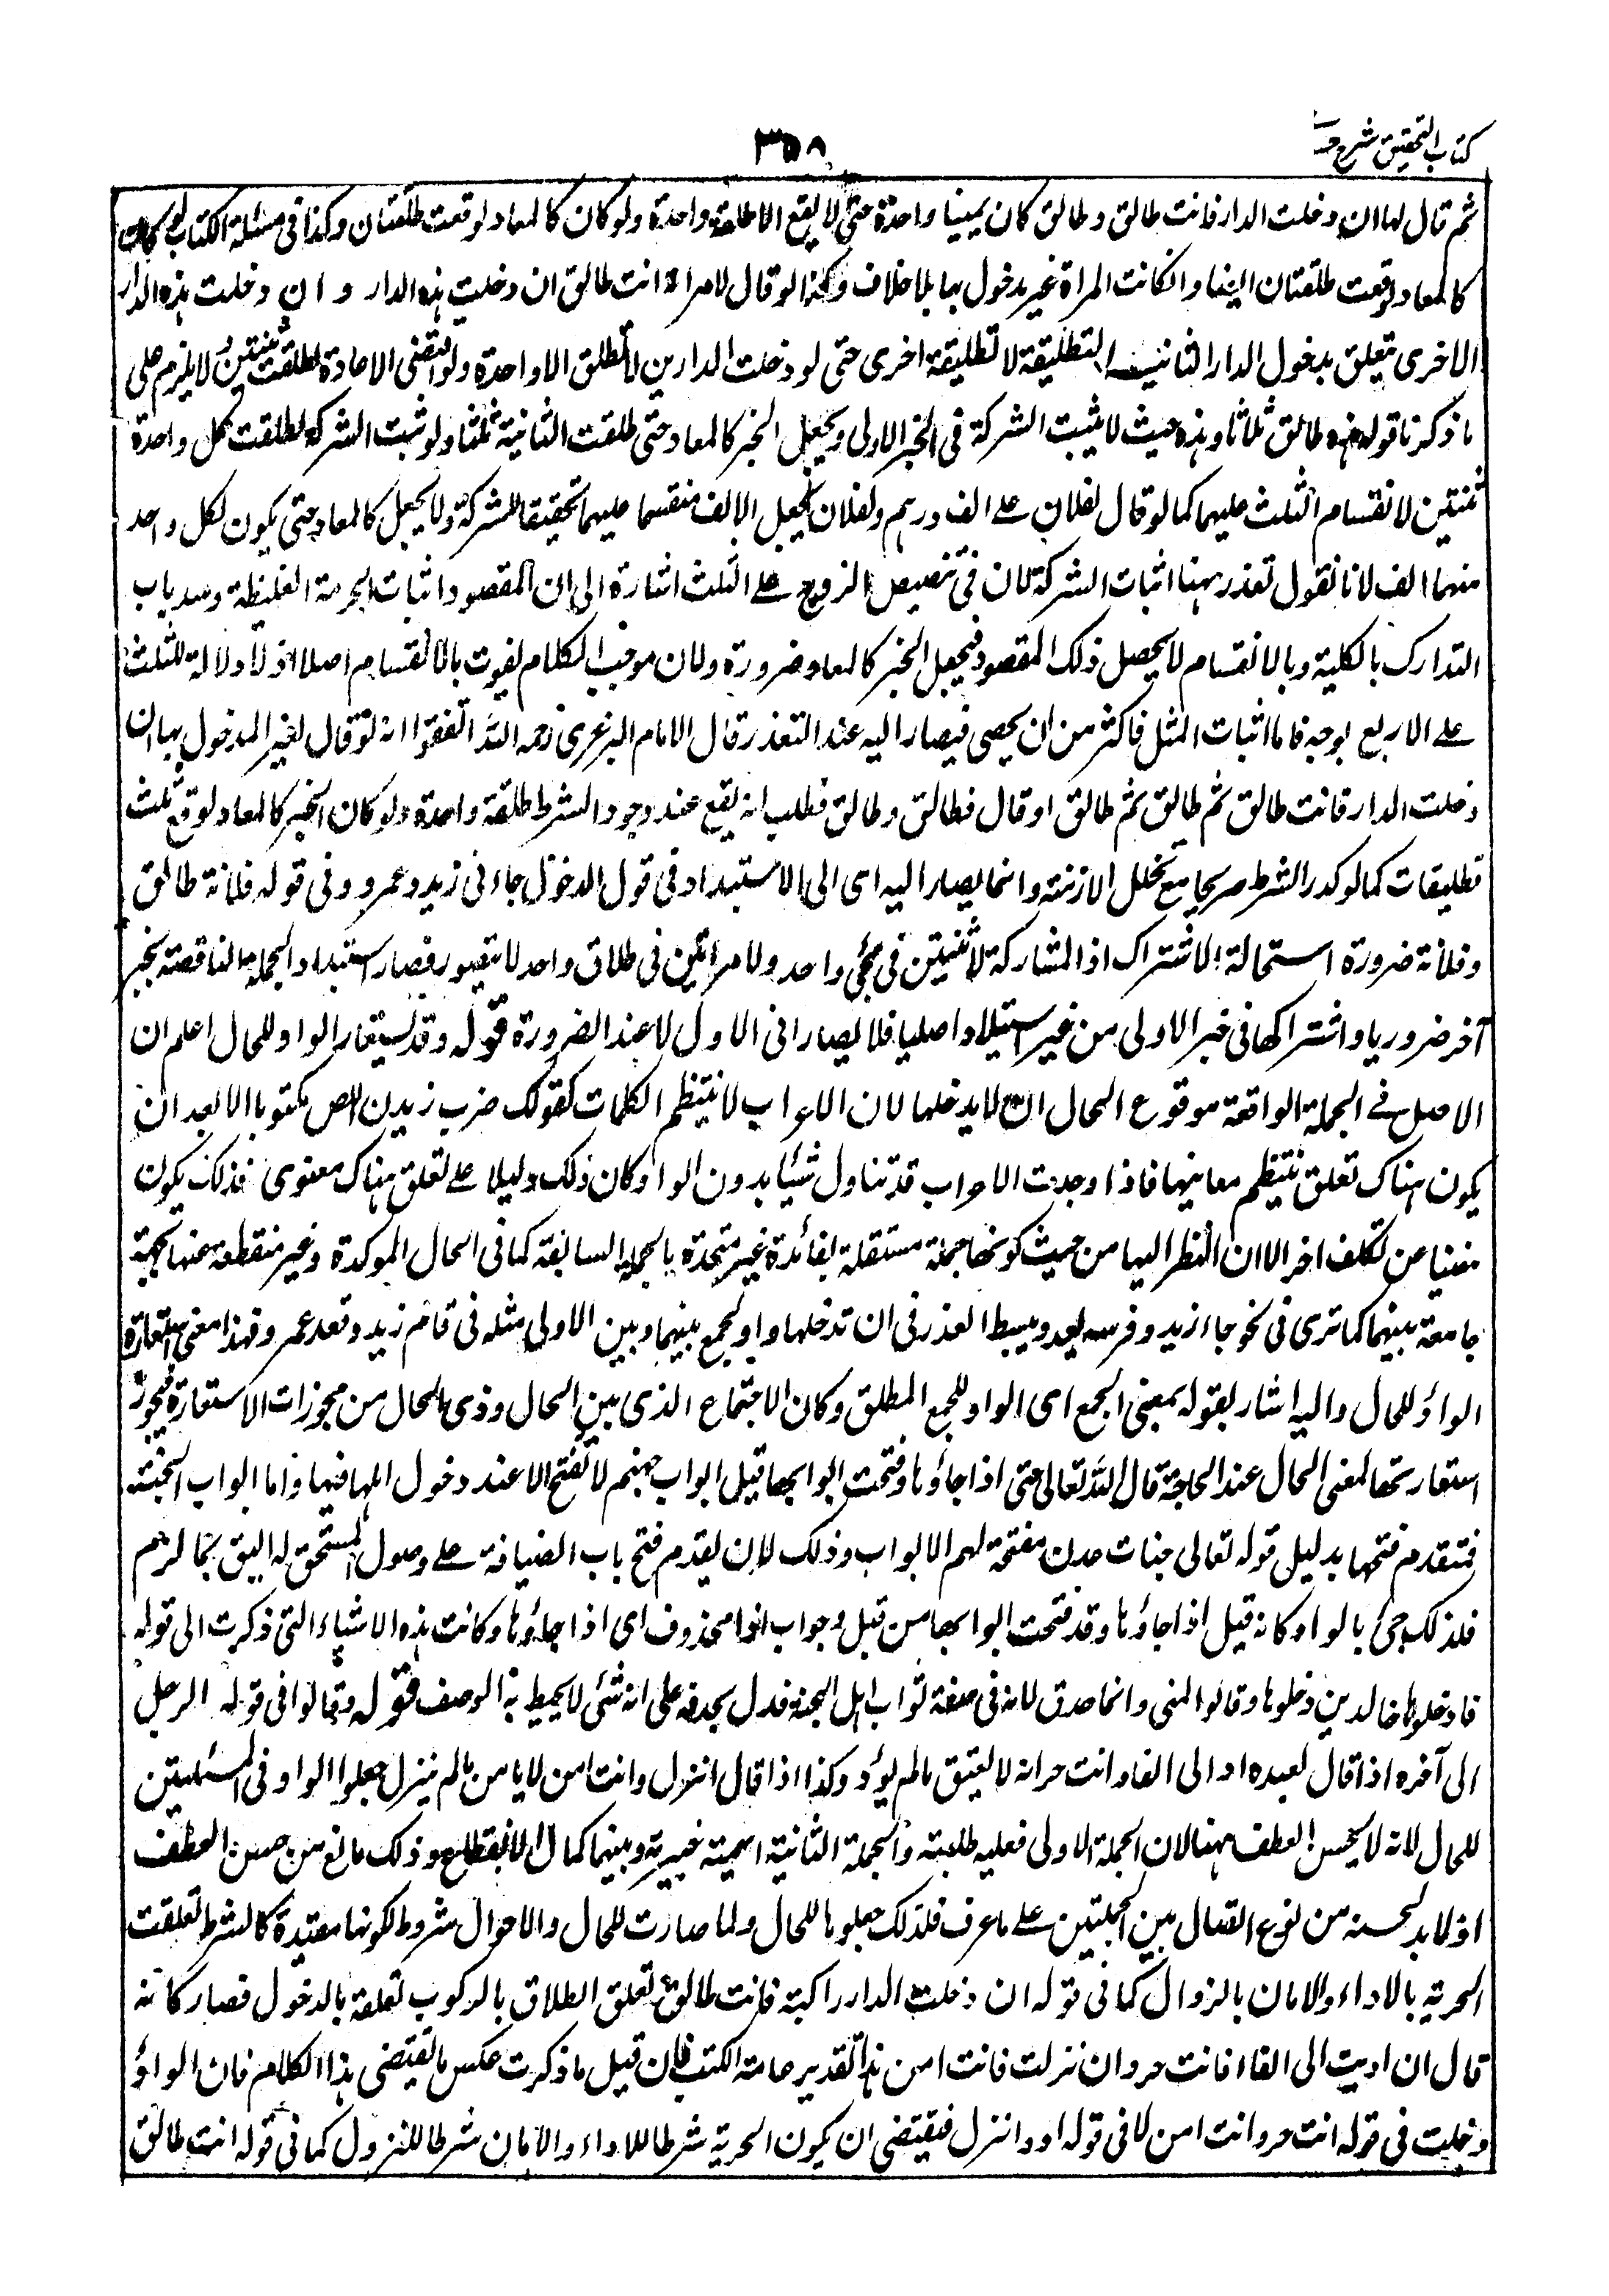 كتاب التحقيق شرح حسا
٣٥٨
ثم قال لها ان دخلت الدار فانت طالق وطالق كان يمينا واحدة حتى لا يقع الا طلقة واحدة ولو كان كالمعاد لوقعت طلقتان وكذا فى مسئلة الكتاب لو كان
كالمعاد لوقعت طلقتان ايضا وان كانت المراة غير مدخول بها بلا خلاف وكذا لو قال لامراته انت طالق ان دخلت هذه الدار و ان دخلت هذه الدار
الاخرى تتعلق بدخول الدار الثانية التطليقة لا تطليقة اخرى حتى لو دخلت الدارين لا تطلق الا واحدة ولو اقتضى الاعادة لطلقت ثنتين ولا يلزم على
ما ذكرنا قوله هذه طالق ثلاثا وهذه حيث لا يثبت الشركة فى الخبر الاولى ويجعل الخبر كالمعاد حتى طلقت الثانية ثلثا ولو ثبت الشركة لطلقت كل واحدة
ثنتين لانقسام الثلث عليهما كما لو قال لفلان على الف درهم ولفلان يجعل الالف منقسما عليهما تحقيقا للشركة ولا يجعل كالمعاد حتى يكون لكل واحد
منهما الف لانا نقول تعذر ههنا اثبات الشركة لان فى تنصيص الزوج على الثلث اشارة الى ان المقصود اثبات الحرمة الغليظة وسد باب
التدارك بالكلية وبالانقسام لا يحصل ذلك المقصود فيجعل الخبر كالمعاد ضرورة ولان موجب الكلام يفوت بالانقسام اصلا اذ لا دلالة للثلث
على الاربع بوجه فاما اثبات المثل فاكثر من ان يحصى فيصار اليه عند التعذر قال الامام البرغرى رحمه الله اتفقوا انه لو قال لغير المدخول بها ان
دخلت الدار فانت طالق ثم طالق ثم طالق او قال فطالق وطالق فطلب انه يقع عند وجود الشرط طلقة واحدة ولو كان الخبر كالمعاد لوقع ثلث
تطليقات كما لو كرر الشرط صريحا مع تخلل الازمنة وانما يصار اليه اى الى الاستبداد فى قول الدخول جاءنى زيد وعمرو وفى قوله فلانة طالق
وفلانة ضرورة استحالة الاشتراك اذ المشاركة لاثنين فى مجئ واحد ولامراتين فى طلاق واحد لا يتصور فصار استبداد الجملة الناقصة بخبر
آخر ضروريا واشتراكها فى خبر الاولى من غير استبداد اصليا فلا يصار الى الاول الا عند الضرورة قوله وقد يستعار الواو للحال اعلم ان
الاصل فى الجملة الواقعة موقوع الحال ان لا يدخلها لان الاعراب لا ينتظم الكلمات كقولك ضرب زيد ن اللص مكتوبا الا بعد ان
يكون هناك تعلق ينتظم معانيها فاذا وجدت الاعراب قد تناول شيئا بدون الواو كان ذلك دليلا على تعلق هناك معنوى فذلك يكون
مغنيا عن تكلف اخر الا ان النظر اليها من حيث كونها جملة مستقلة بفائدة غير متحدة بالجملة السابقة كما فى الحال الموكدة وغير منقطعة عنها بجهة
جامعة بينهما كما ترى فى نحو جاء زيد وفرسه يعدو يبسط العذر فى ان تدخلها واو لجمع بينها وبين الاولى مثله فى قام زيد وقعد عمرو فهذا معنى استعارة
الواو للحال واليه اشار بقوله بمعنى الجمع اى الواو للجمع المطلق وكان الاجتماع الذى بين الحال وذى الحال من مجوزات الاستعارة فيجوز
استعارتها لمعنى الحال عند الحاجة قال الله تعالى حتى اذا جاؤها وفتحت ابوابها قيل ابواب جهنم لا تفتح الا عند دخول اهلها فيها واما ابواب الجنة
فتتقدم فتحها بدليل قوله تعالى جنات عدن مفتحة لهم الابواب وذلك لان تقدم فتح باب الضيافة على وصول المستحق له اليق بالكرم
فلذلك جئ بالواو كانه قيل اذا جاؤها وقد فتحت ابوابها من قبل وجواب اذا محذوف اى اذا جاؤها وكانت هذه الاشياء التى ذكرت الى قوله
فادخلوها خالدين دخلوها وقالوا المنى وانما حذف لانه فى صفة ثواب اهل الجنة فدل بحذفه على انه شئ لا يحيط به الوصف قوله وقالوا فى قول الرجل
الى آخره اذا قال لعبده اد الى الفا وانت حر انه لا يعتق ما لم يؤد وكذا اذا قال انزل وانت امن لا يامن ما لم ينزل جعلوا الواو فى المسئلتين
للحال لانه لا يحسن العطف ههنا لان الجملة الاولى فعلية طلبية والجملة الثانية اسمية خبرية وبينهما كمال الانقطاع وذلك مانع من حسن العطف
اذ لابد لحسنه من نوع اتصال بين الجملتين على ما عرف فلذلك جعلوها للحال ولما صارت للحال والاحوال شروط لكونها مقيدة كالشرط تعلقت
الحرية بالاداء والامان بالنزول كما فى قوله ان دخلت الدار راكبة فانت طالق تعلق الطلاق بالركوب تعلقه بالدخول فصار كانه
قال ان اديت الى الفا فانت حر وان نزلت فانت امن هذا تقدير عامة الكتب فان قيل ما ذكرت عكس ما يقتضى هذا الكلام فان الواو
دخلت فى قوله انت حر وانت امن لا فى قوله اد وانزل فيقتضى ان يكون الحرية شرطا للاداء والامان شرطا للنزول كما فى قوله انت طالق